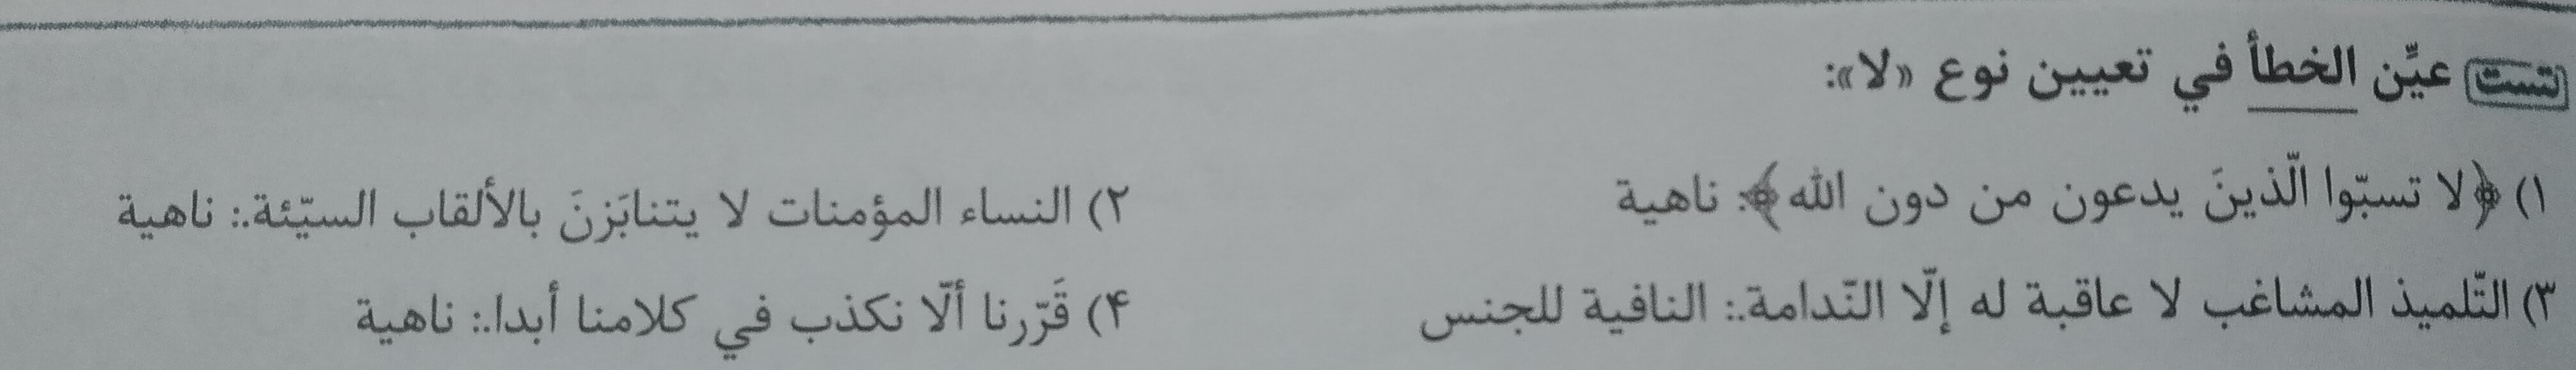 تست عیِّن الخطأ في تعیین نوع «لا»:
۱) ﴿لا تسبّوا الّذینَ یدعون من دون الله﴾: ناهیة
۲) النساء المؤمنات لا یتنابَزنَ بالألقاب السیّئة.: ناهیة
۳) التّلمیذ المشاغب لا عاقبة له إلّا النّدامة.: النافیة للجنس
۴) قَرّرنا ألّا نكذب في كلامنا أبدا.: ناهیة